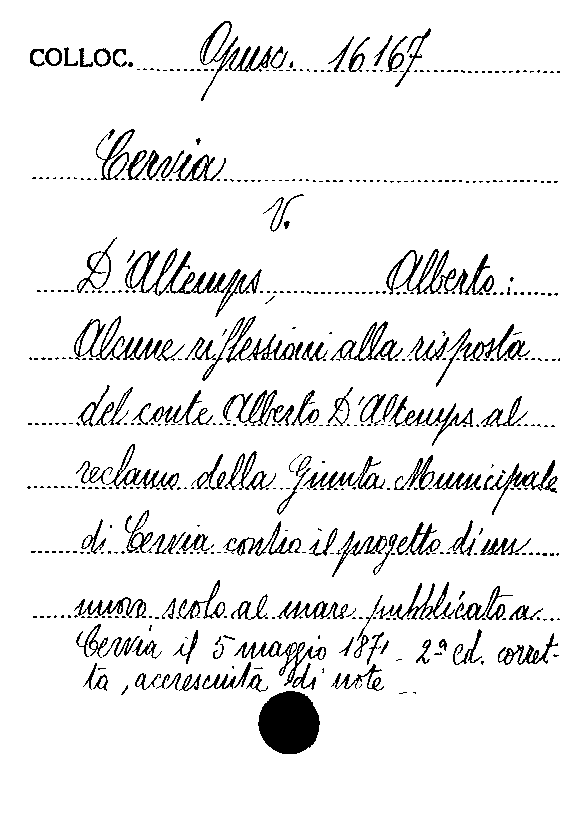 COLLOC. Opusc. 16167
Cervia
V.
D'Altemps, Alberto:
Alcune riflessioni alla risposta
del conte Alberto D'Altemps al
reclamo della Giunta Municipale
di Cervia contro il progetto di un
nuovo scolo al mare pubblicato a
Cervia il 5 maggio 1871 - 2ª ed. corret-
ta, accresciuta di note